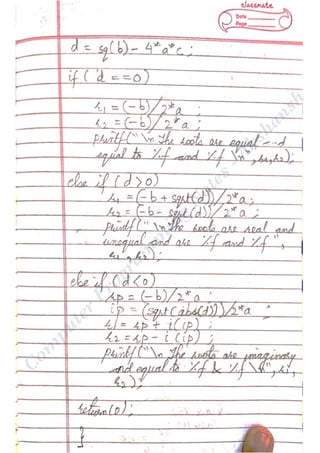 classmate
Date
Page
d = sq(b) - 4*a*c ;
if ( d == 0)
r1 = (-b)/2*a ;
r2 = (-b)/2*a ;
printf("\n The roots are equal --d
equal to %f and %f \n", r1, r2);
else if (d > 0)
r1 = (-b + sqrt(d))/2*a ;
r2 = (-b - sqrt(d))/2*a ;
printf("\n The roots are real and
unequal and are %f and %f",
r1, r2);
else if (d < 0)
rp = (-b)/2*a ;
ip = (sqrt(abs(d)))/2*a ;
r1 = rp + i(ip) ;
r2 = rp - i(ip) ;
printf("\n The roots are imaginary
and equal to %f & %f \n", r1,
r2);
return(0);
}